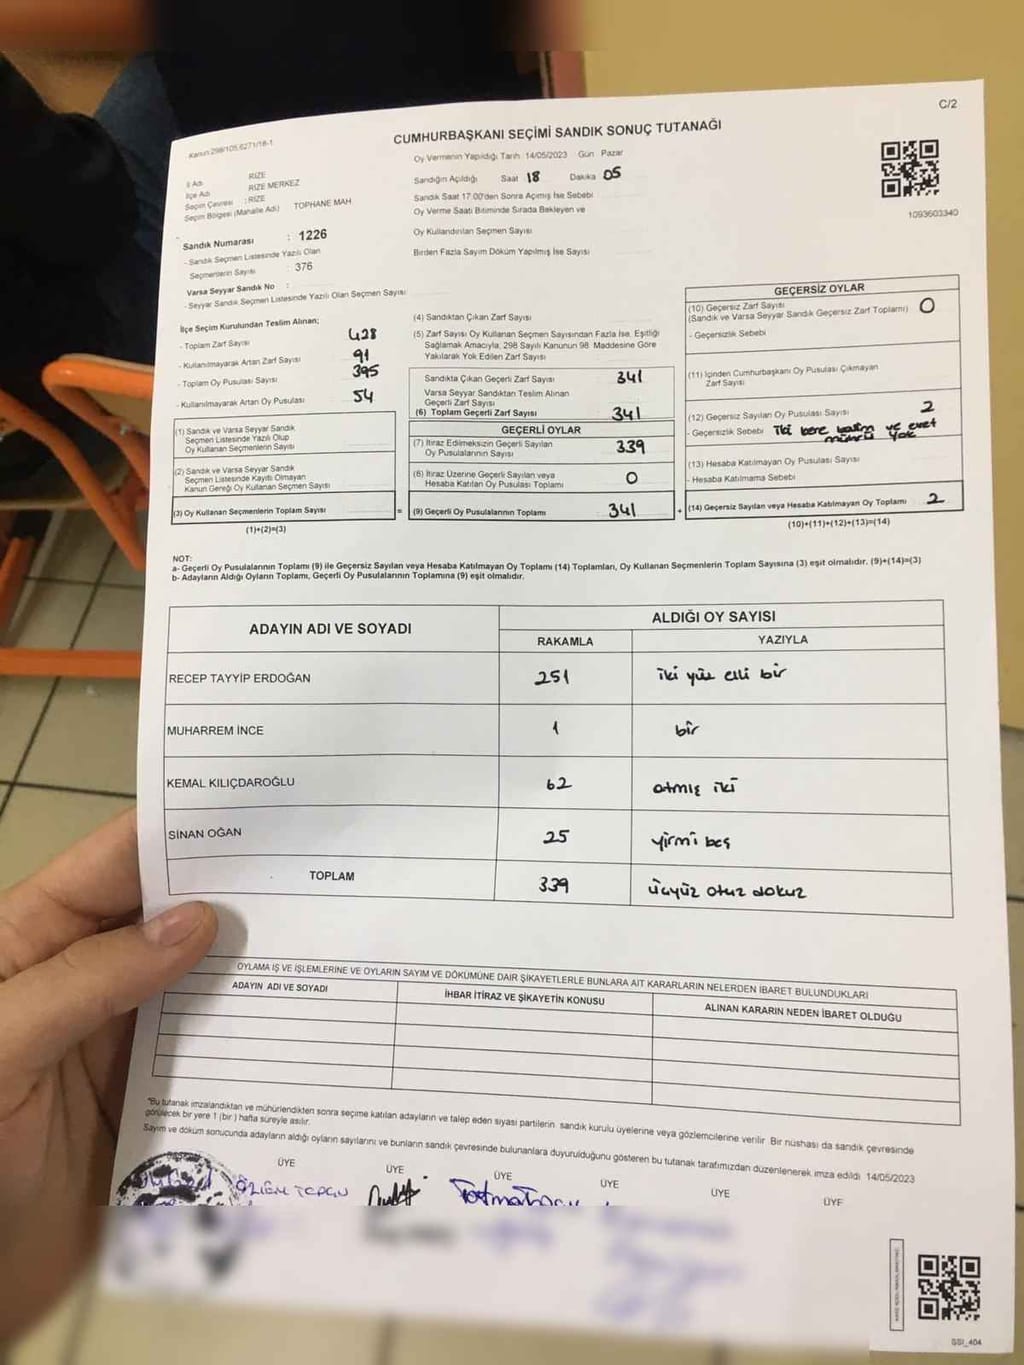 C/2
Kanun:298/105,6271/18-1
CUMHURBAŞKANI SEÇİMİ SANDIK SONUÇ TUTANAĞI
Oy Vermenin Yapıldığı Tarih 14/05/2023 Gün Pazar
İl Adı : RİZE
İlçe Adı : RİZE MERKEZ
Seçim Çevresi : RİZE
Seçim Bölgesi (Mahalle Adı) TOPHANE MAH
Sandığın Açıldığı Saat 18 Dakika 05
Sandık Saat 17:00'den Sonra Açımış İse Sebebi
Oy Verme Saati Bitiminde Sırada Bekleyen ve
Oy Kullandırılan Seçmen Sayısı
Birden Fazla Sayım Döküm Yapılmış İse Sayısı
1093603340
Sandık Numarası : 1226
- Sandık Seçmen Listesinde Yazılı Olan
Seçmenlerin Sayısı : 376
Varsa Seyyar Sandık No :
- Seyyar Sandık Seçmen Listesinde Yazılı Olan Seçmen Sayısı
İlçe Seçim Kurulundan Teslim Alınan;
- Toplam Zarf Sayısı 428
- Kullanılmayarak Artan Zarf Sayısı 91
- Toplam Oy Pusulası Sayısı 395
- Kullanılmayarak Artan Oy Pusulası 54
(1) Sandık ve Varsa Seyyar Sandık
Seçmen Listesinde Yazılı Olup
Oy Kullanan Seçmenlerin Sayısı
(2) Sandık ve Varsa Seyyar Sandık
Seçmen Listesinde Kayıtlı Olmayan
Kanun Gereği Oy Kullanan Seçmen Sayısı
(3) Oy Kullanan Seçmenlerin Toplam Sayısı
(1)+(2)=(3)
(4) Sandıktan Çıkan Zarf Sayısı
(5) Zarf Sayısı Oy Kullanan Seçmen Sayısından Fazla İse, Eşitliği
Sağlamak Amacıyla, 298 Sayılı Kanunun 98. Maddesine Göre
Yakılarak Yok Edilen Zarf Sayısı
Sandıkta Çıkan Geçerli Zarf Sayısı 341
Varsa Seyyar Sandıktan Teslim Alınan
Geçerli Zarf Sayısı
(6) Toplam Geçerli Zarf Sayısı 341
GEÇERLİ OYLAR
(7) İtiraz Edilmeksizin Geçerli Sayılan
Oy Pusulalarının Sayısı 339
(8) İtiraz Üzerine Geçerli Sayılan veya
Hesaba Katılan Oy Pusulası Toplamı 0
= (9) Geçerli Oy Pusulalarının Toplamı 341 +
GEÇERSİZ OYLAR
(10) Geçersiz Zarf Sayısı
(Sandık ve Varsa Seyyar Sandık Geçersiz Zarf Toplamı) 0
- Geçersizlik Sebebi
(11) İçinden Cumhurbaşkanı Oy Pusulası Çıkmayan
Zarf Sayısı
(12) Geçersiz Sayılan Oy Pusulası Sayısı 2
- Geçersizlik Sebebi iki kere basım ve evet
mührü yok
(13) Hesaba Katılmayan Oy Pusulası Sayısı
- Hesaba Katılmama Sebebi
(14) Geçersiz Sayılan veya Hesaba Katılmayan Oy Toplamı 2
(10)+(11)+(12)+(13)=(14)
NOT:
a- Geçerli Oy Pusulalarının Toplamı (9) ile Geçersiz Sayılan veya Hesaba Katılmayan Oy Toplamı (14) Toplamları, Oy Kullanan Seçmenlerin Toplam Sayısına (3) eşit olmalıdır. (9)+(14)=(3)
b- Adayların Aldığı Oyların Toplamı, Geçerli Oy Pusulalarının Toplamına (9) eşit olmalıdır.
ADAYIN ADI VE SOYADI ALDIĞI OY SAYISI
RAKAMLA YAZIYLA
RECEP TAYYİP ERDOĞAN 251 iki yüz elli bir
MUHARREM İNCE 1 bir
KEMAL KILIÇDAROĞLU 62 atmış iki
SİNAN OĞAN 25 yirmi beş
TOPLAM 339 üçyüz otuz dokuz
OYLAMA İŞ VE İŞLEMLERİNE VE OYLARIN SAYIM VE DÖKÜMÜNE DAİR ŞİKAYETLERLE BUNLARA AİT KARARLARIN NELERDEN İBARET BULUNDUKLARI
ADAYIN ADI VE SOYADI İHBAR İTİRAZ VE ŞİKAYETİN KONUSU ALINAN KARARIN NEDEN İBARET OLDUĞU
*Bu tutanak imzalandıktan ve mühürlendikten sonra seçime katılan adayların ve talep eden siyasi partilerin sandık kurulu üyelerine veya gözlemcilerine verilir. Bir nüshası da sandık çevresinde
görülecek bir yere 1 (bir) hafta süreyle asılır.
Sayım ve döküm sonucunda adayların aldığı oyların sayılarını ve bunların sandık çevresinde bulunanlara duyurulduğunu gösteren bu tutanak tarafımızdan düzenlenerek imza edildi. 14/05/2023
ÜYE ÜYE ÜYE ÜYE ÜYE ÜYE
GSI_404